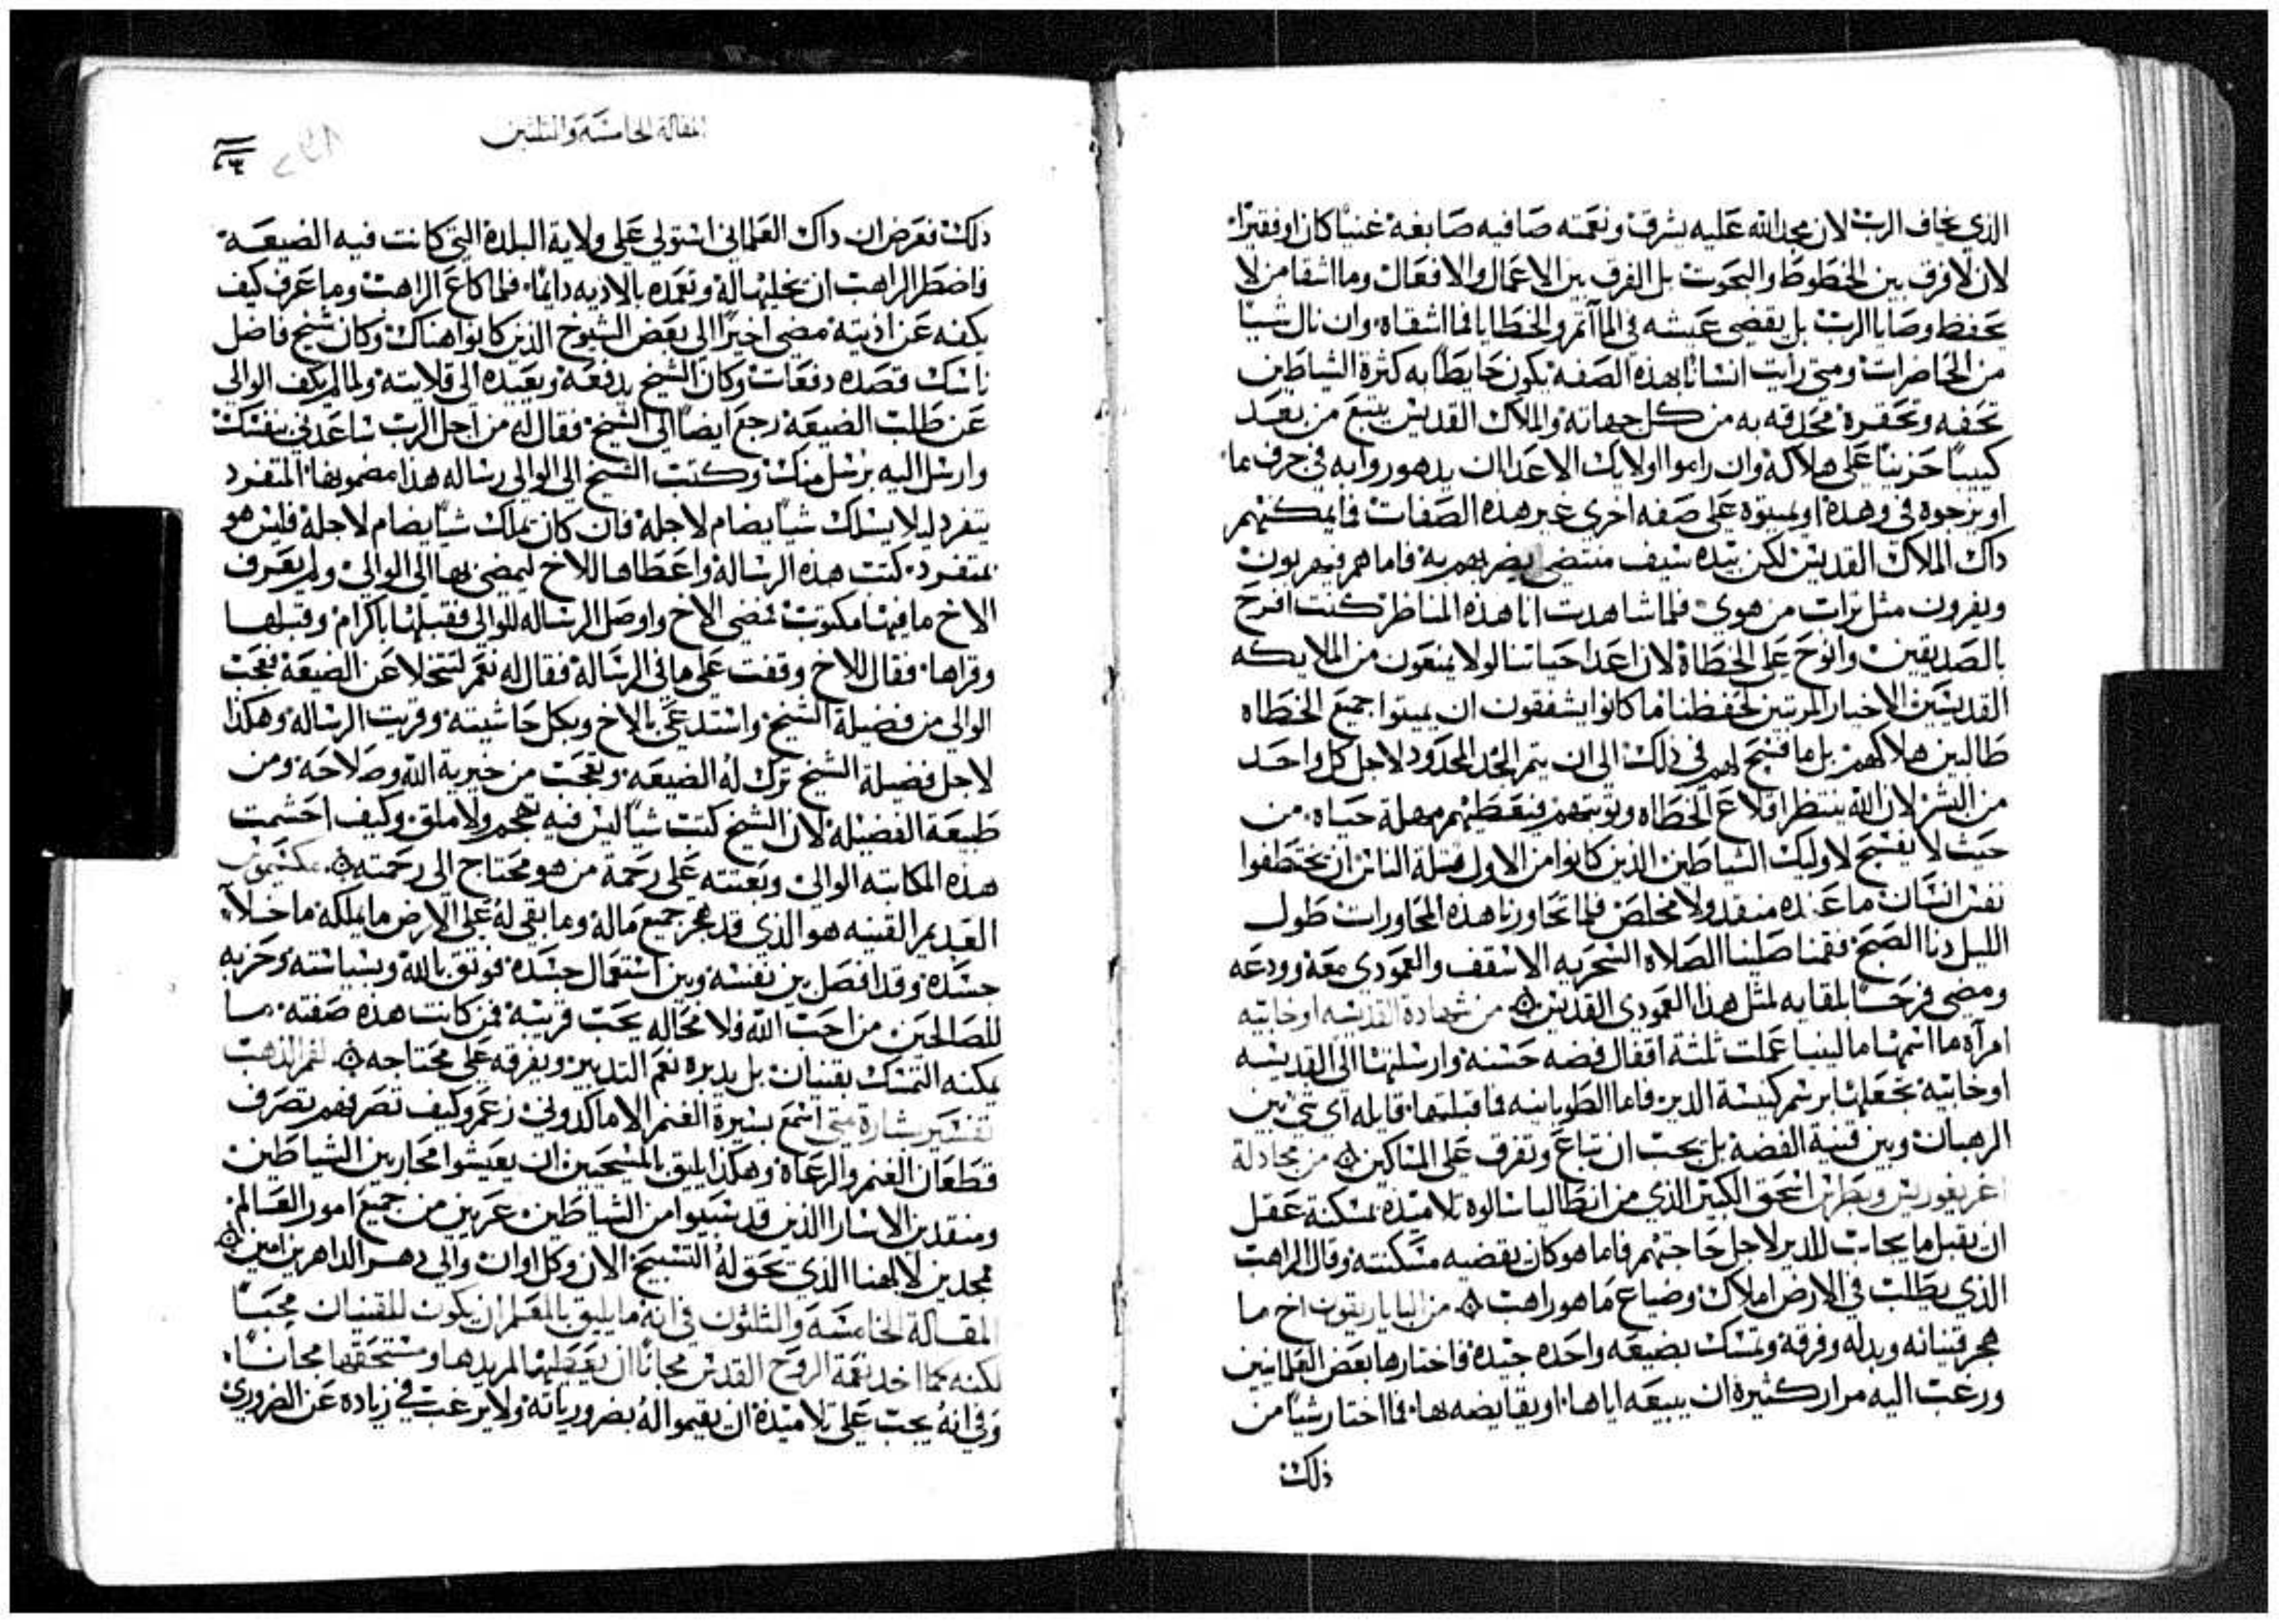 الذي يخاف الرب لان مجد الله عليه يشرق ونعمته صافيه صابغة غنيًا كان او فقيرًا
لان لا فرق بين الخطوط والبخوت بل الفرق بين الاعمال والافعال وما اشقا من لا
يحفظ وصايا الرب بل يقضي عيشه في المآثم والخطايا فما اشقاه وان نال شيًا
من الحاضرات ومتي رايت انسانًا بهذه الصفه يكون حايطًا به كثرة الشياطين
تحفه وتحقره محدقه به من كل جهاته والملاك القديس يتبع من بعد
كييبًا حزينًا على هلاكه وان راموا اولايك الاعدا ان يدهوروا به في جرف ما
او يزجوه في وهدة او يميتوه على صفه اخري غير هذه الصفات فما يمكنهم
داك الملاك القديس لكن بيده سيف منتضى يضربهم به فاما هم فيهربون
ويفرون مثل تراب من هوي فلما شاهدت انا هذه المناظر كنت افرح
بالصديقين وانوح على الخطاة لان اعدا حياتنا لولا يمنعون من الملايكه
القديسين الاخيار المرتبين لحفظنا ما كانوا يشفقون ان يميتوا جميع الخطاه
طالبين هلاكهم بل ما فسح لهم في ذلك الى ان يتم الحد المحدود لاجل كل واحد
من البشر لان الله ينتظر اقلاع الخطاه وتوبتهم فيعطيهم مهلة حياه من
حيث لا يفسح لاوليك الشياطين الذين كانوا من الاول قتلة الناس ان يختطفوا
نفس انسان ما عنده منقد ولا مخلص فلما تحاورنا هذه المحاورات طول
الليل دنا الصبح فقمنا صلينا الصلاه السحريه الاسقف والعمودي معه وودعه
ومضى فرحًا بلقايه لمثل هذا العمودي القديس من شهادة القديسه اوخابيه
امرآه ما اسمها مالينيا عملت ثلثة اقفال فضه حسنه وارسلتها الى القديسه
اوخابيه تجعلها برسم كنيسة الدير فاما الطوبانيه فما قبلتها قايله اي شي بين
الرهبان وبين قنية الفضة بل يجب ان تباع وتفرق على المساكين من مجادلة
اغريغوريس وبطرس اسحق الكبير الذي من انطاليا سالوه تلاميذه بمسكنة عقل
ان يقبل ما يجاب للدير لاجل حاجتهم فاما هو كان بقضيه مسكنته وقال الراهب
الذي يطلب في الارض املاك وضياع ما هو راهب من الباياريقون اخ ما
هجر قنيانه وبدله وفرقه وتمسك بضيعه واحده جيدة فاختارها بعض العلمانيين
ورغب اليه مرار كثيرة ان يبيعه اياها او يقايضه بها فما اختار شيًا من
ذلك
المقالة الخامسة والثلثين
ذلك فعرض ان داك العلماني استولي على ولاية البلدة التي كانت فيه الضيعه
فاضطر الراهب ان يخليها له وتعمده بالاذيه دايمًا فلما كاع الراهب وما عرف كيف
يكفه عن اذيته مضى اخيرًا الى بعض الشيوخ الذين كانوا هناك وكان شيخ فاضل
ناسك قصده دفعات وكان الشيخ يدفعه ويعيده الى قلايته ولما لم يكف الوالي
عن طلب الضيعه رجع ايضًا الى الشيخ فقال له من اجل الرب ساعدني بنفسك
وارسل اليه برسل منك وكتب الشيخ الى الوالى رساله هذا مضمونها المتفرد
يتفرد ليلا يملك شيًا يضام لاجله فان كان يملك شيًا يضام لاجله فليس هو
بمتفرد كتب هذه الرسالة واعطاها للاخ ليمضي بها الى الوالي ولم يعرف
الاخ ما فيها مكتوب فمضى الاخ واوصل الرساله للوالي فقبلها باكرام وقبلها
وقراها فقال للاخ وقفت على ما في الرسالة فقال له نعم لتتخلا عن الضيعة فعجب
الوالى من فضيلة الشيخ واستدعى بالاخ وبكل حاشيته وقريت الرساله وهكذا
لاجل فضيلة الشيخ ترك له الضيعه وتعجب من خيرية الله وصلاحه ومن
طبيعة الفضيلة لان الشيخ كتب شيًا ليس فيه تهجم ولا ملق وكيف احشمت
هذه المكاتبه الوالي وبعثته على رحمة من هو محتاج الى رحمته مكسيموس
العديم القنيه هو الذي قد هجر جميع ماله وما بقي له على الارض ما يملكه ما خلا
جسده وقد افصل بين نفسه وبين استعمال جسده فوثق بالله وبسياسته وحزبه
للصالحين من احب الله فلا محاله يحب قريبه فمن كانت هذه صفته ما
يمكنه التمسك بقنيان بل يدبره نعم التدبير ويفرقه على محتاجه لفم الذهب
تفسير بشارة متي اسمع بسيرة الغنم الاماكدوني زعم وكيف تصرفهم تصرف
قطعان الغنم والرعاة وهكذا يليق بالمسيحيين ان يعيشوا محاربين الشياطين
ومنقدين الاسارا الذين قد سبيوا من الشياطين عريين من جميع امور العالم
ممجدين لالهنا الذي يحق له التسبيح الان وكل اوان والى دهر الداهرين امين
المقالة الخامسة والثلثون في انه ما يليق بالمعلم ان يكون للقنيان محبًا
لكنه كما اخد نعمة الروح القدس مجانًا ان يعطيها لمريدها ومستحقها مجانًا
وفي انه يجب على تلاميذه ان يقيموا له بضرورياته ولا يرغب في زياده عن الضروري